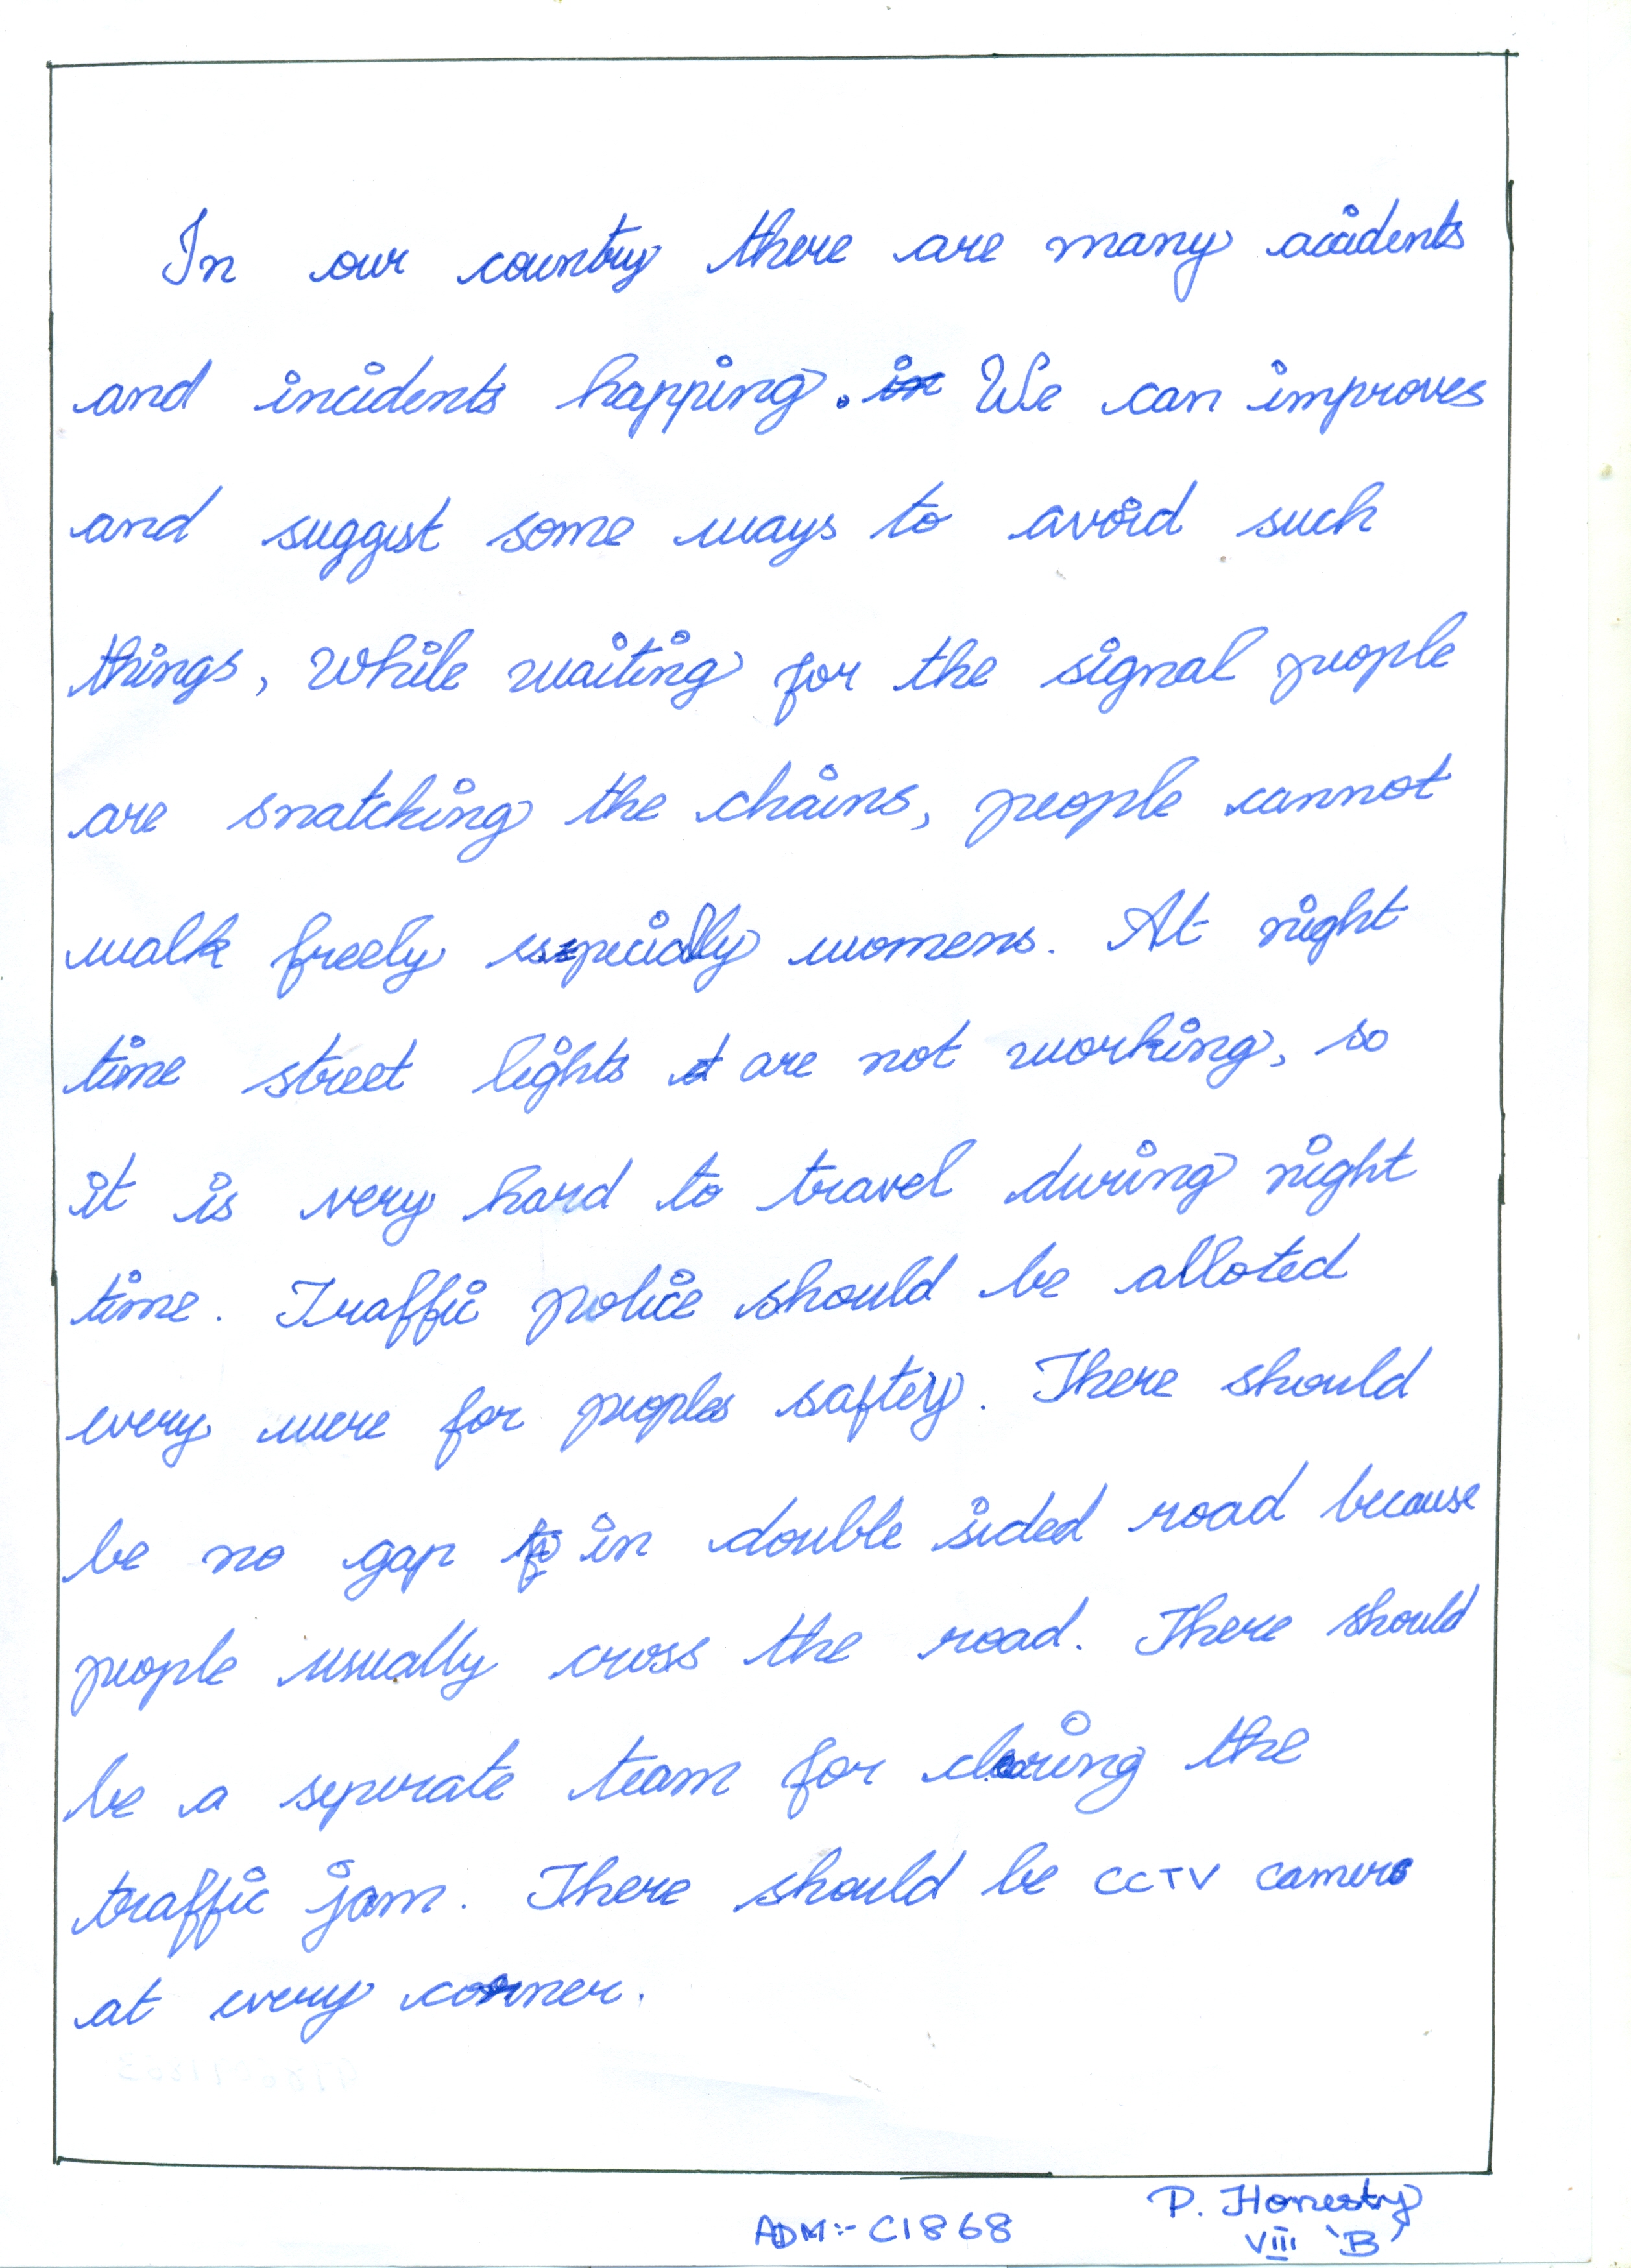 In our country there are many accidents
and incidents happing. We can improves
and suggest some ways to avoid such
things, While waiting for the signal people
are snatching the chains, people cannot
walk freely especially womens. At night
time street lights are not working, so
it is very hard to travel during night
time. Traffic police should be alloted
every were for peoples saftey. There should
be no gap in double sided road because
people usually cross the road. There should
be a seperate team for clearing the
traffic jam. There should be CCTV camera
at every corner.
ADM:- C1868
P. Honesty
VIII 'B'